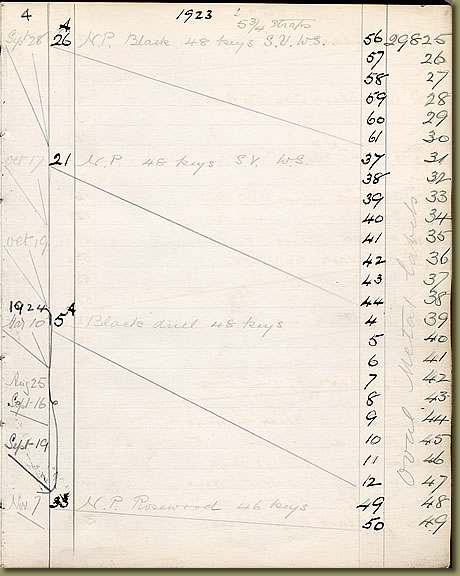 4 1923 5 3/4 Straps
A
Sept 28 26 N.P. Black 48 keys S.V. W.S. 56 29825
57 26
58 27
59 28
60 29
61 30
Oct 17 21 N.P. 48 keys S.V. W.S. 37 31
38 32
39 33
40 34
Oct 19 41 35
42 36
43 37
1924 44 38
A
Mar 10 5 Black 48 keys 4 39
5 40
6 41
Aug 25 7 42
Sept 16 8 43
9 44
Sept 19 10 45
11 46
12 47
Nov 7 33 N.P. Rosewood 46 keys 49 48
50 49
Oval Metal Labels